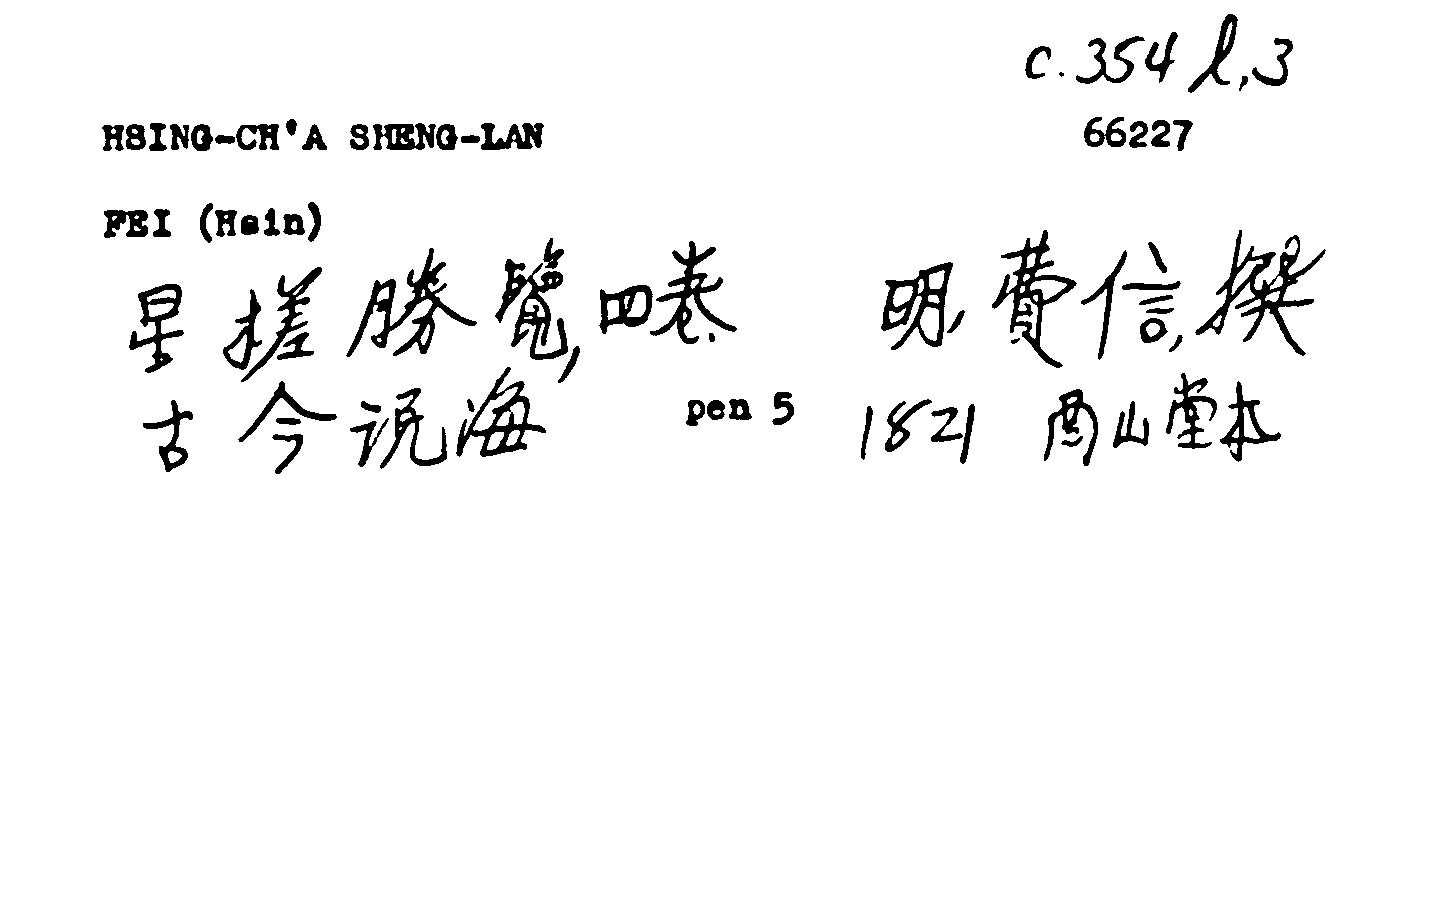 c.354 l,3
HSING-CH'A SHENG-LAN 66227
FEI (Hsin)
星槎勝覽, 四卷. 明, 費信, 撰
古今説海 pen 5 1821 酉山堂本